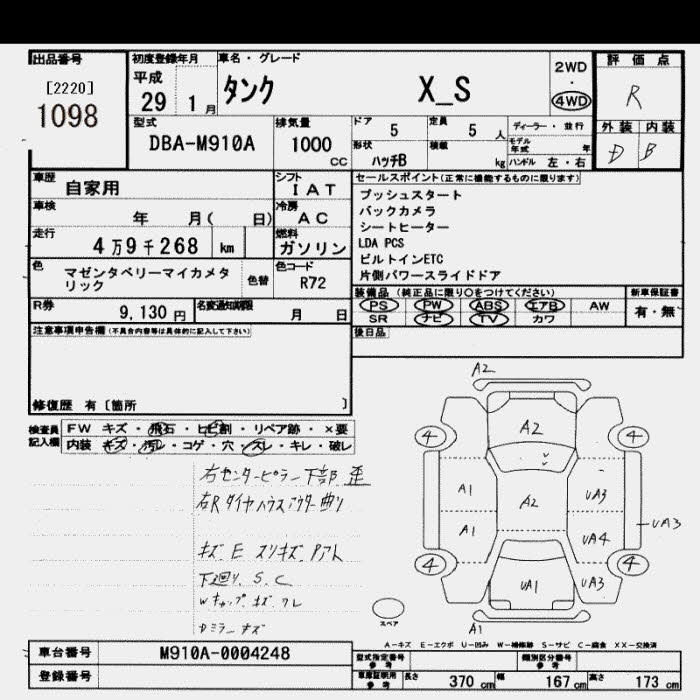 出品番号
[2220]
1098
初度登録年月
平成
29 1 月
車名・グレード
タンク X_S
2WD
・
4WD
評価点
R
外装 内装
D B
型式
DBA-M910A
排気量
1000
CC
ドア 5
定員 5 人
ディーラー・並行
形状
ハッチB
積載 kg
モデル年式 年
ハンドル 左・右
車歴
自家用
シフト
IAT
車検 年 月( 日)
冷房
AC
走行
4万9千268 km
燃料
ガソリン
色
マゼンタベリーマイカメタ
リック
色替
色コード
R72
R券
9,130 円
名変通知期限
月 日
セールスポイント(正常に機能するものに限ります)
プッシュスタート
バックカメラ
シートヒーター
LDA PCS
ビルトインETC
片側パワースライドドア
装備品(純正品に限り○をつけてください)
PS PW ABS エアB AW
SR ナビ TV カワ
新車保証書
有・無
後日品
注意事項申告欄(不具合内容等は具体的に記入して下さい)
修復歴 有〔箇所 〕
検査員
記入欄
FW キズ・飛石・ヒビ割・リペア跡・×要
内装 キズ・汚レ・コゲ・穴・スレ・キレ・破レ
右センターピラー下部 歪
右Rタイヤハウスアウター曲り
キズ E スリキズ、Pアト
下廻り、S、C
Wキャップ キズ ワレ
Dミラー キズ
A2
4
A2
4
A1
A2
UA3
UA3
A1
UA4
4
UA1
UA3
4
A1
スペア
A-キズ E-エクボ U-凹み W-補修跡 S-サビ C-腐食 XX-交換済
車台番号
M910A-0004248
登録番号
型式指定番号
参考
類別区分番号
参考
車庫証明用
参考
長さ 370 cm 幅 167 cm 高さ 173 cm